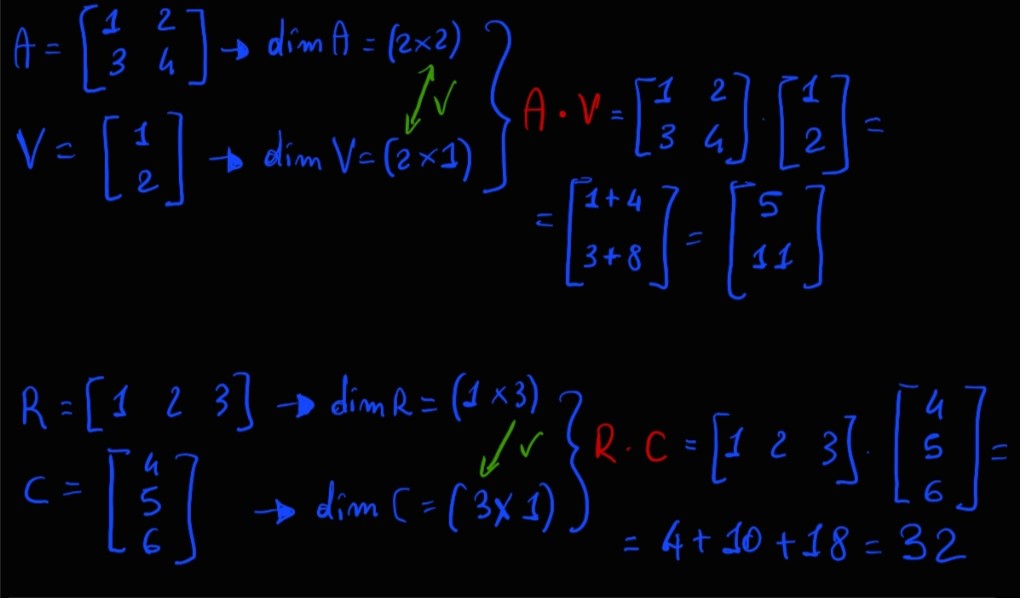 A = [1 2; 3 4] → dim A = (2×2)
V = [1; 2] → dim V = (2×1)
A · V = [1 2; 3 4] · [1; 2] =
= [1+4; 3+8] = [5; 11]
R = [1 2 3] → dim R = (1×3)
C = [4; 5; 6] → dim C = (3×1)
R · C = [1 2 3] · [4; 5; 6] =
= 4+10+18 = 32